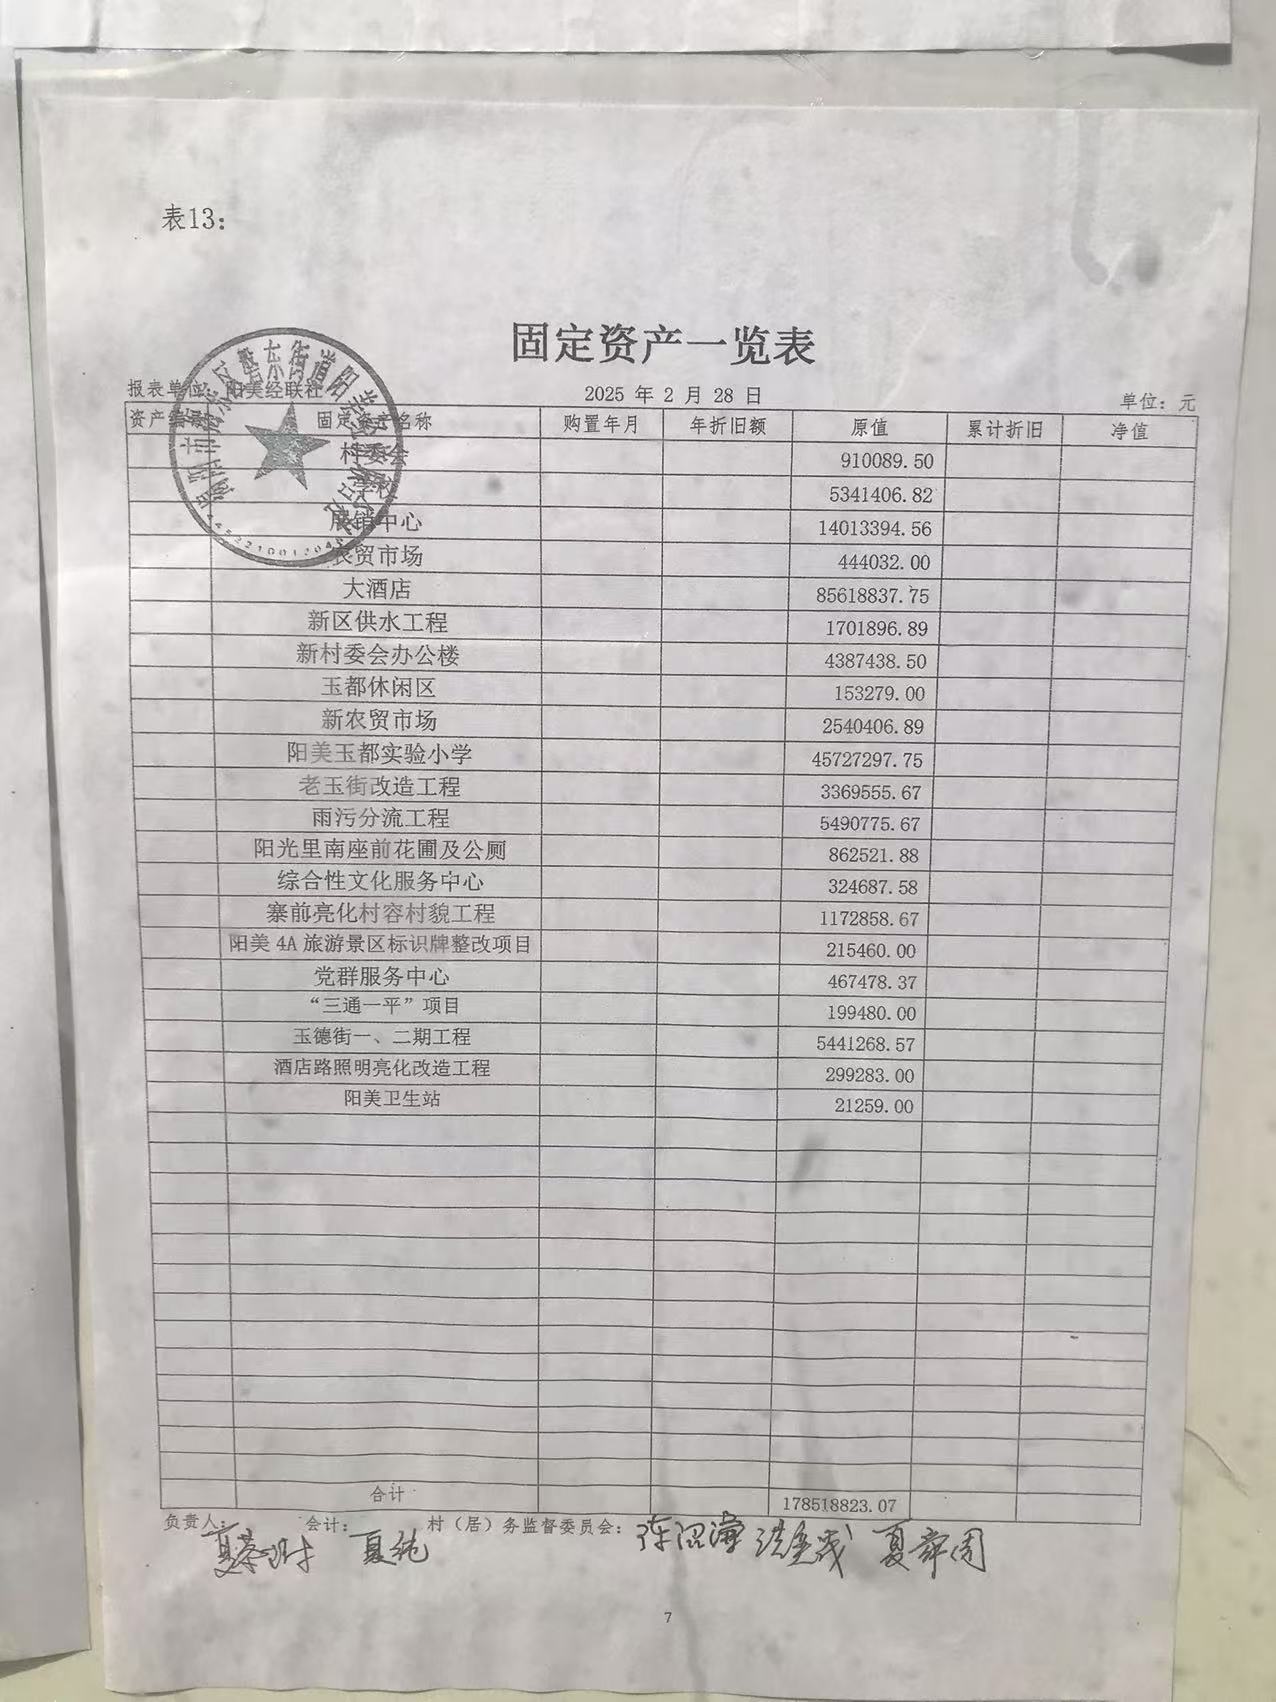 表13：
固定资产一览表
报表单位：阳美经联社 2025 年 2 月 28 日 单位：元
资产编 固定资产名称 购置年月 年折旧额 原值 累计折旧 净值
村委会 910089.50
学校 5341406.82
展销中心 14013394.56
农贸市场 444032.00
大酒店 85618837.75
新区供水工程 1701896.89
新村委会办公楼 4387438.50
玉都休闲区 153279.00
新农贸市场 2540406.89
阳美玉都实验小学 45727297.75
老玉街改造工程 3369555.67
雨污分流工程 5490775.67
阳光里南座前花圃及公厕 862521.88
综合性文化服务中心 324687.58
寨前亮化村容村貌工程 1172858.67
阳美 4A 旅游景区标识牌整改项目 215460.00
党群服务中心 467478.37
“三通一平”项目 199480.00
玉德街一、二期工程 5441268.57
酒店路照明亮化改造工程 299283.00
阳美卫生站 21259.00
合计 178518823.07
负责人： 会计： 村（居）务监督委员会：
夏 夏纯 夏舜周
7